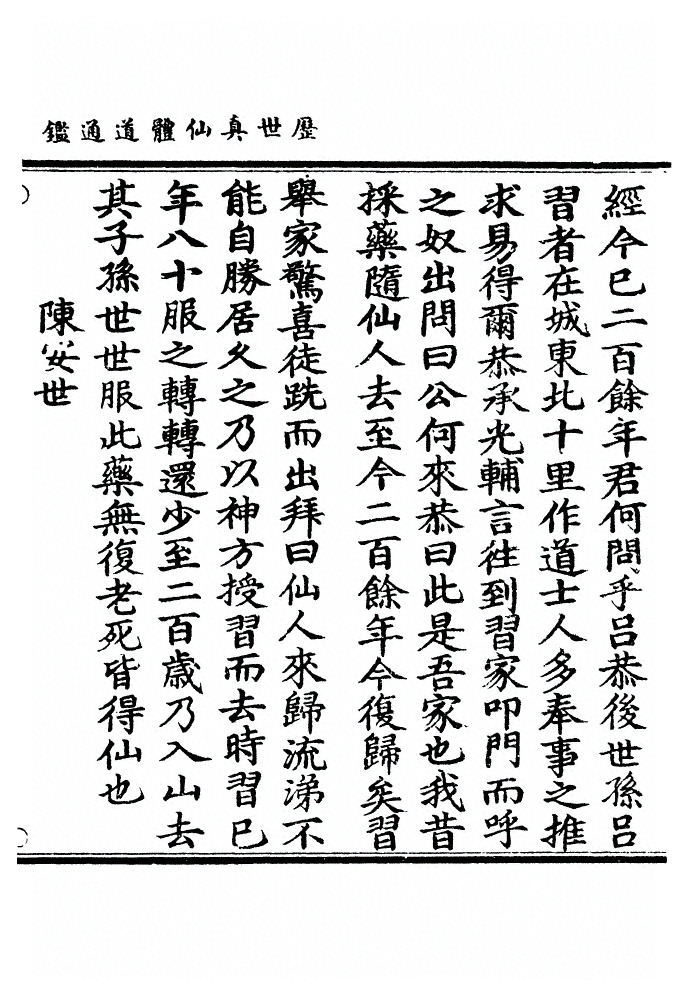 歷世真仙體道通鑑
經今已二百餘年君何問乎呂恭後世孫呂
習者在城東北十里作道士人多奉事之推
求易得爾恭承光輔言徃到習家叩門而呼
之奴出問曰公何來恭曰此是吾家也我昔
採藥隨仙人去至今二百餘年今復歸矣習
舉家驚喜徒跣而出拜曰仙人來歸流涕不
能自勝居久之乃以神方授習而去時習已
年八十服之轉轉還少至二百歲乃入山去
其子孫世世服此藥無復老死皆得仙也
陳安世